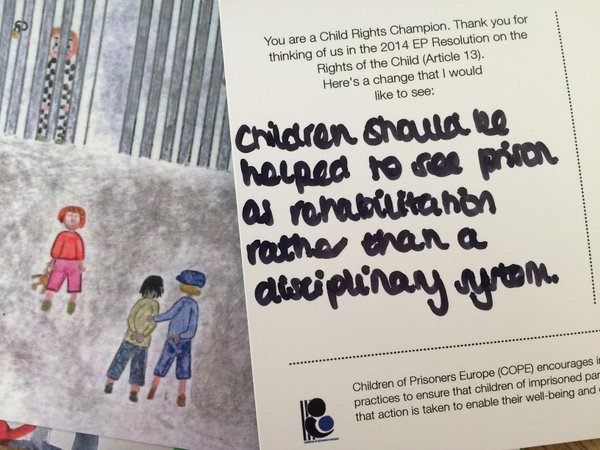 You are a Child Rights Champion. Thank you for
thinking of us in the 2014 EP Resolution on the
Rights of the Child (Article 13).
Here's a change that I would
like to see:
Children should be
helped to see prison
as rehabilitation
rather than a
disciplinary system.
Children of Prisoners Europe (COPE) encourages in
practices to ensure that children of imprisoned par
that action is taken to enable their well-being and